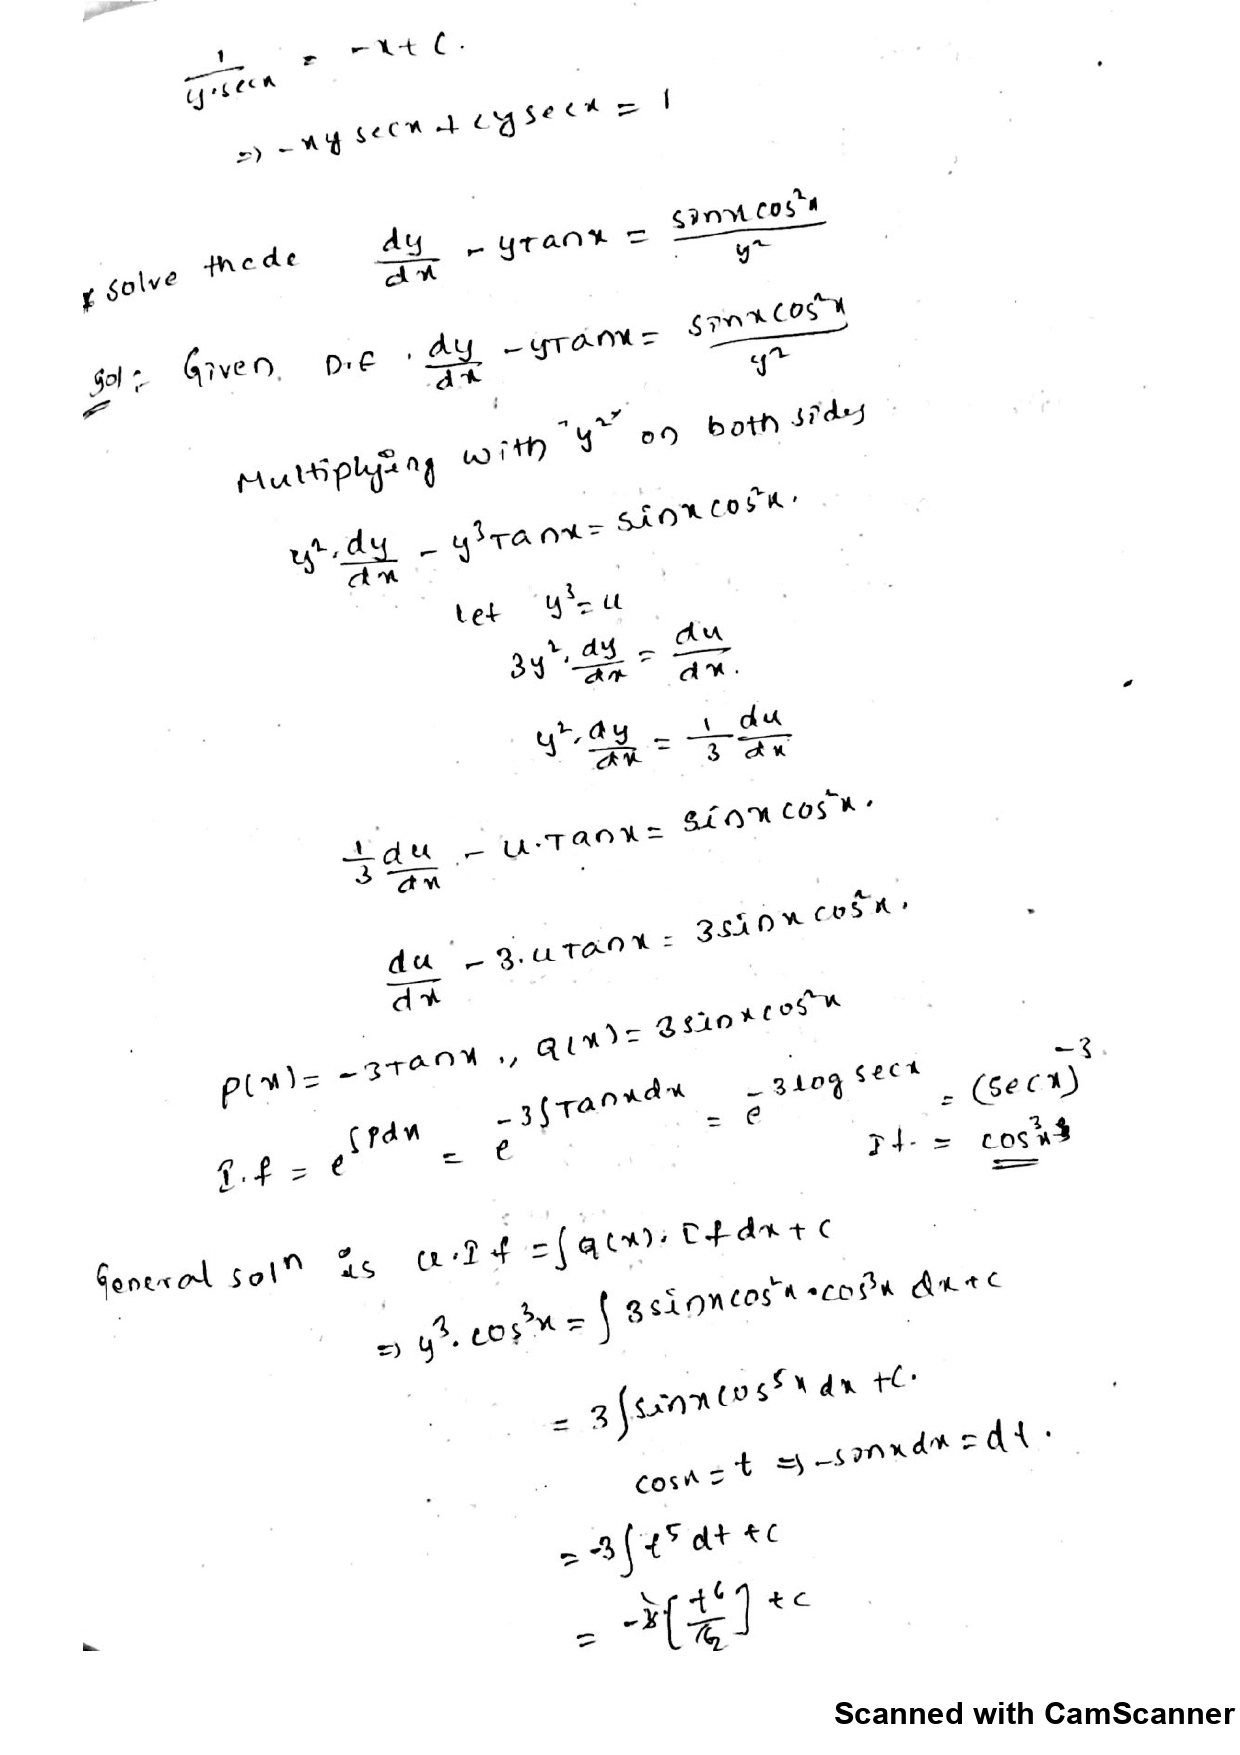 1/(y·secx) = -x + c.
⇒ -xy secx + cy secx = 1
* solve the de dy/dx - ytanx = sinx cos²x/y²
Sol:- Given D.E. dy/dx - yTanx = sinx cos²x/y²
Multiplying with "y²" on both sides
y²·dy/dx - y³Tanx = sinx cos²x.
let y³ = u
3y²·dy/dx = du/dx.
y²·dy/dx = 1/3 du/dx
1/3 du/dx - u·Tanx = sinx cos²x.
du/dx - 3·uTanx = 3sinx cos²x.
P(x) = -3tanx ., Q(x) = 3sinx cos²x
I.f = e^∫Pdx = e^-3∫Tanxdx = e^-3logsecx = (secx)^-3.
If. = cos³x
General solⁿ is u·If = ∫Q(x)·If dx + c
⇒ y³·cos³x = ∫3sinx cos²x·cos³x dx + c
= 3∫sinx cos⁵x dx + c.
cosx = t ⇒ -sinxdx = dt.
= -3∫t⁵ dt + c
= -3[t⁶/6 2] + c
Scanned with CamScanner